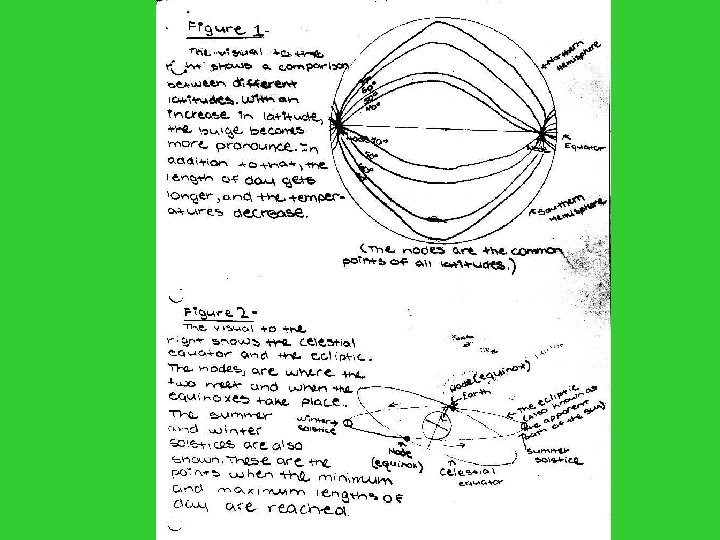 Figure 1-
The visual to the
right shows a comparison
between different
latitudes. With an
increase in latitude,
the bulge becomes
more pronounce. In
addition to that, the
length of day gets
longer, and the temper-
atures decrease.
60°
50°
40°
Northern
Hemisphere
Node
50°
60°
Node
Equator
Southern
Hemisphere
(The nodes are the common
points of all latitudes.)
Figure 2-
The visual to the
right shows the celestial
equator and the ecliptic.
The nodes, are where the
two meet and when the
equinoxes take place.
The summer
and winter
solstices are also
shown. These are the
points when the minimum
and maximum lengths of
day are reached.
Node (equinox)
Earth
winter
solstice
The ecliptic
(also known as
the apparent
path of the sun)
Node
(equinox)
Celestial
equator
summer
solstice